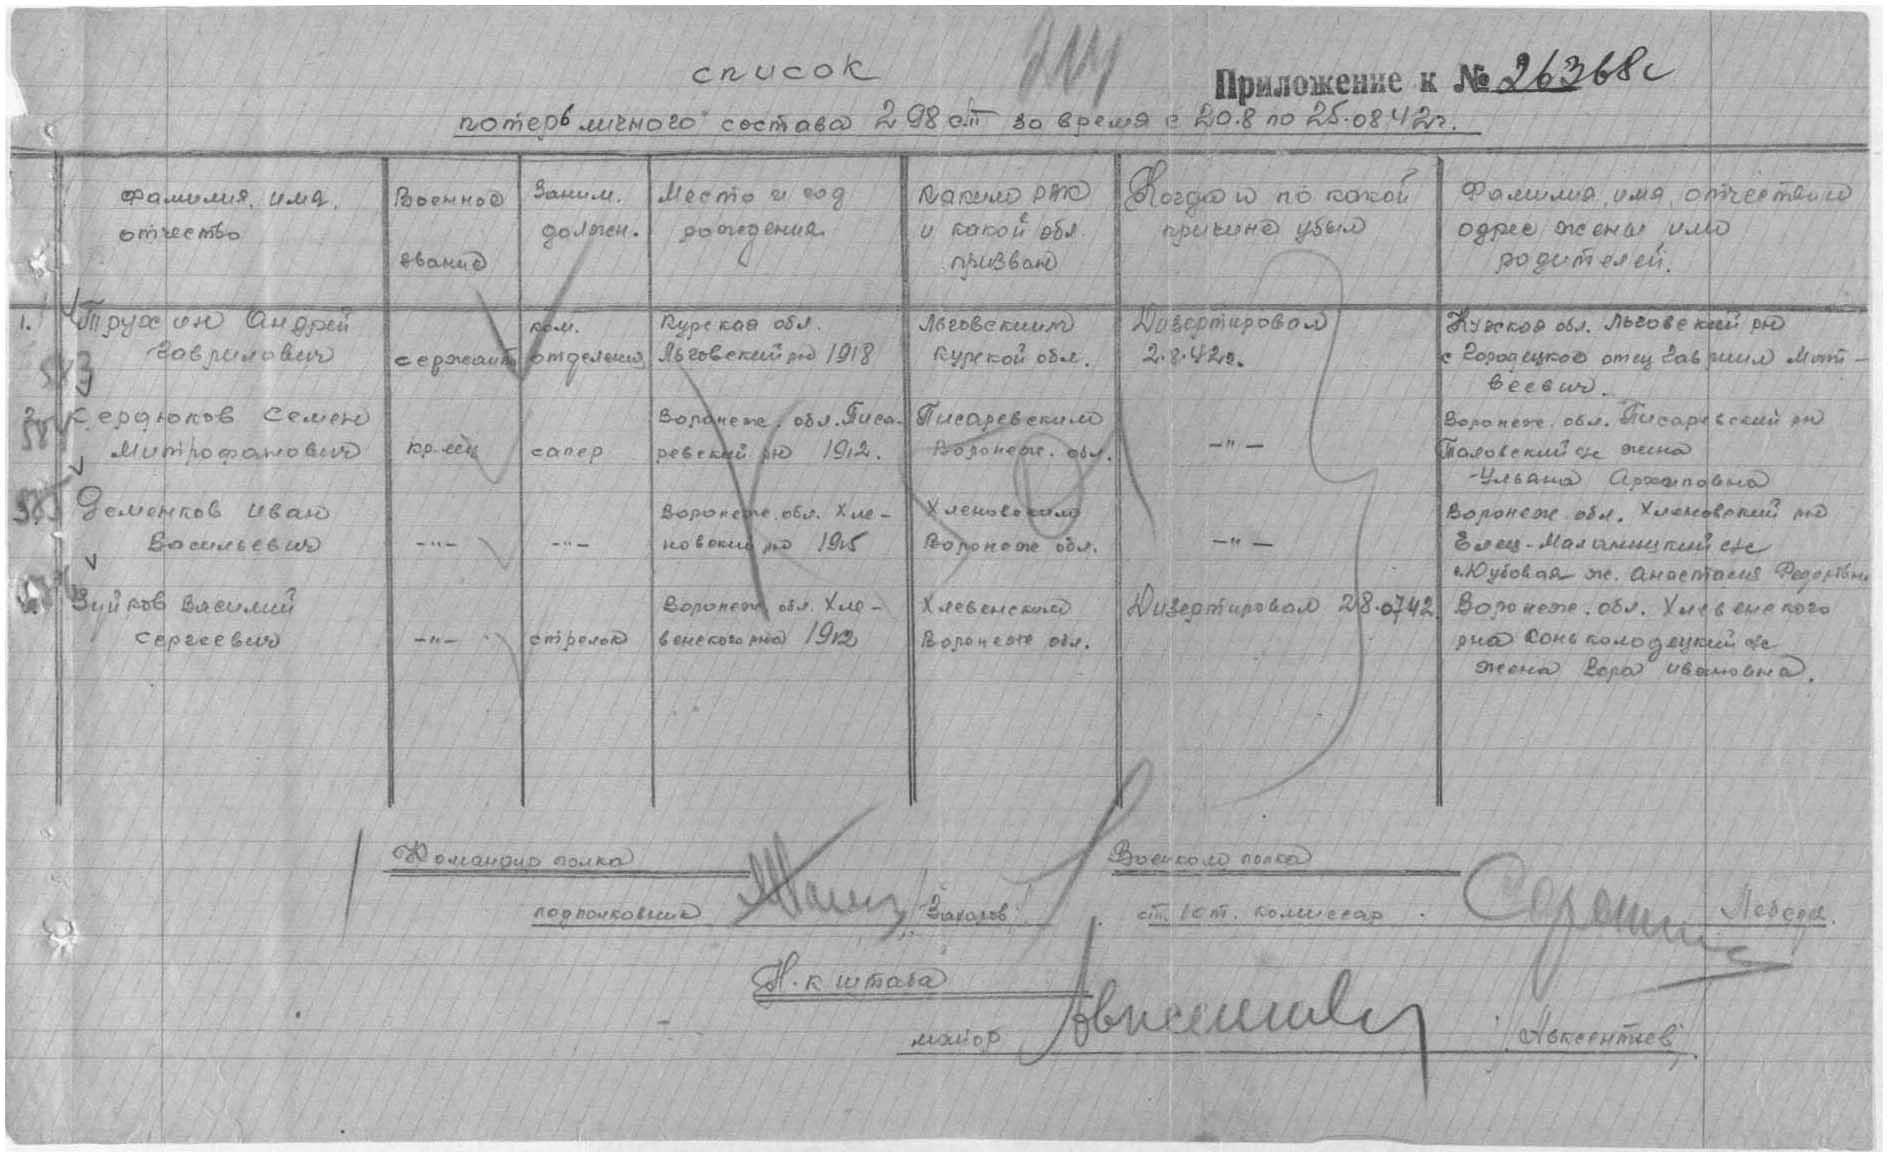 список
Приложение к № 26368с
потерь личного состава 298 сп за время с 20.8 по 25.08.42г.
Фамилия, имя, отчество
Военное звание
Заним. должен.
Место и год рождения
Каким РВК и какой обл. призван
Когда и по какой причине убыл
Фамилия, имя, отчество и адрес жены или родителей.
1. Трухин Андрей Гаврилович
сержант
ком. отделения
Курская обл. Льговский рн 1918
Льговским Курской обл.
Дизертировал 2.8.42г.
Курская обл. Льговский рн
с Городецкое отец Гаврил Мат-
веевич.
583
2. Сердюков Семен Митрофанович
кр-ец
сапер
Воронеж. обл. Писа-
ревский рн 1912.
Писаревским Воронеж. обл.
-"-
Воронеж. обл. Писаревский рн
Таловский с/с жена
Ульяна Архиповна
585
Деменков Иван Васильевич
-"-
-"-
Воронеж. обл. Хле-
новский рн 1915
Хленовским Воронеж обл.
-"-
Воронеж обл. Хленовский рн
Елец-Маланинский с/с
ж. Анастасия Федоровна
Зуйков Василий Сергеевич
-"-
стрелок
Воронеж. обл. Хле-
венского рна 1912
Хлевенским Воронеж обл.
Дизертировал 28.0742.
Воронеж. обл. Хлевенского
рна Конь колодецкий с/с
жена Вера Ивановна.
Командир полка
Военком полка
подполковник
/Захаров/
ст. бат. комиссар
Н-к штаба
майор
/Авксентьев/